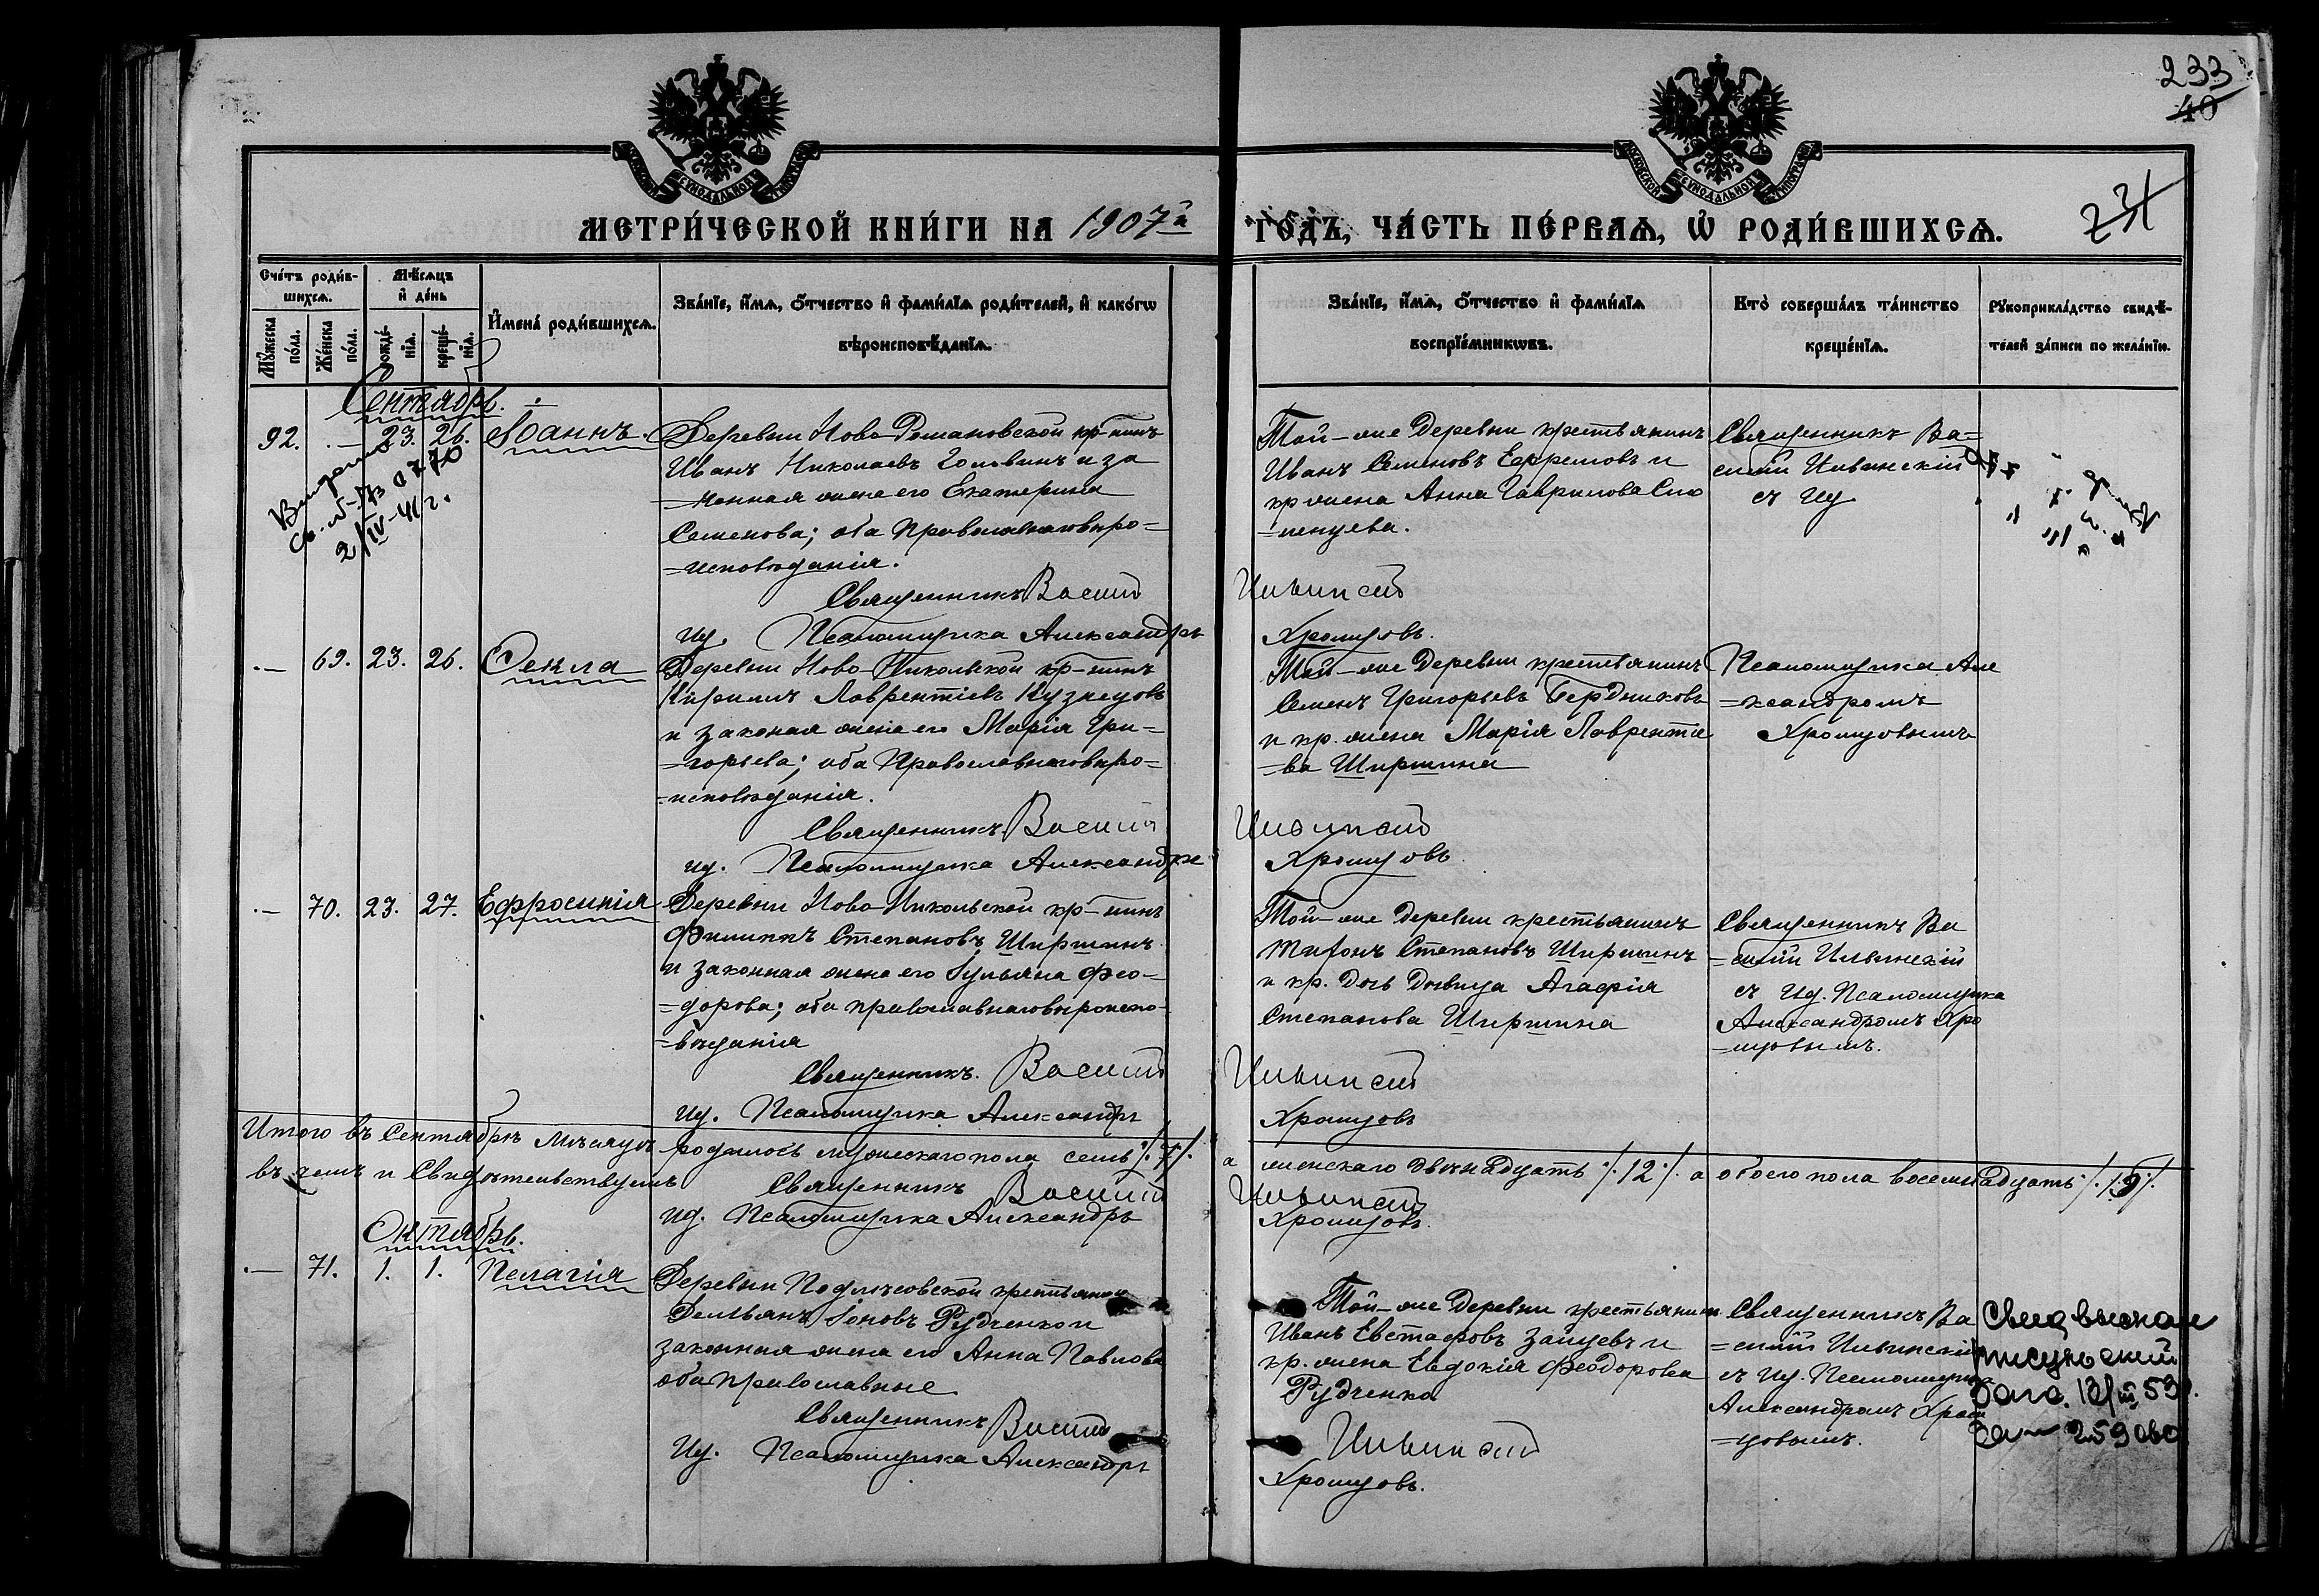 233
40
231
МЕТРИ́ЧЕСКОЙ КНИ́ГИ НА 1907й
ГО́ДЪ, ЧА́СТЬ ПЕ́РВАѦ, Ѡ҆ РОДИ́ВШИХСѦ.
Сче́тъ роди́в-
шихсѧ.
Мѣ́сѧцъ
и҆ де́нь
Мꙋ́жеска
по́ла.
Же́нска
по́ла.
рожде́-
нїѧ.
креще́-
нїѧ.
И҆мена̀ роди́вшихсѧ.
Зва́нїе, и҆́мѧ, ѻ҆́тчество и҆ фами́лїѧ роди́телей, и҆ како́гѡ
вѣроисповѣ́данїѧ.
Зва́нїе, и҆́мѧ, ѻ҆́тчество и҆ фами́лїѧ
воспрїе́мникѡвъ.
Кто̀ соверша́лъ та́инство
креще́нїѧ.
Рꙋкоприкла́дство свидѣ́-
телей за́писи по жела́нїю.
Сентябрь.
92. — 23. 26. Іоаннъ.
Деревни Ново-Романовской кр-нинъ
Иванъ Николаевъ Гольвинъ и за
=конная жена его Екатерина
Семенова; оба Православнаговѣро=
=исповѣданія.
Священникъ Василій
Ид. Псаломщика Александръ
Той-же деревни крестьянинъ
Иванъ Семеновъ Ефремовъ и
кр жена Анна Гаврилова
Ильинскій
Хромцовъ.
Священникъ Ва=
силій Ильинскій
съ Ид
2/IV-41 г.
— 69. 23. 26. Ѳекла
Деревни Ново-Никольской кр-нинъ
Кириллъ Лаврентіевъ Кузнецовъ
и законная жена его Марія Гри=
=горьева; оба Православнаговѣро=
=исповѣданія.
Священникъ Василій
ид. Псаломщика Александръ
Той-же деревни крестьянинъ
Семенъ Григорьевъ Бердниковъ
и кр. жена Марія Лаврентіе
=ва Ширшина
Ильинскій
Хромцовъ.
Псаломщика Але
=ксандромъ
Хромцовымъ
— 70. 23. 27. Ефросинія
Деревни Ново-Никольской кр-нинъ
Филиппъ Степановъ Ширшинъ
и законная жена его Іульяна Фео=
=дорова; оба православнаговѣроиспо-
=вѣданія
Священникъ. Василій
ид. Псаломщика Александръ
Той-же деревни крестьянинъ
Тифонъ Степановъ Ширшинъ
и кр. дочь дѣвица Агафія
Степанова Ширшина
Ильинскій
Хромцовъ
Священникъ Ва
=силій Ильинскій
съ Ид. Псаломщика
Александромъ Хро
=мцовымъ.
Итого въ Сентябрѣ мѣсяцѣ родилось мужескаго пола семь /.7/. а женскаго двѣнадцать /.12./ а обоего пола восемнадцать
въ чемъ и свидѣтельствуемъ
Священникъ Василій Ильинскій
ид. Псаломщика Александръ Хромцовъ.
Октябрь.
— 71. 1. 1. Пелагія
Деревни Подлюсовской крестьянинъ
Демьянъ Іоновъ Рудченко и
законная жена его Анна Павлова
оба православные
Священникъ Василій
Ид. Псаломщика Александръ
Той-же деревни крестьянинъ
Иванъ Евстафовъ Зайцевъ и
кр. жена Евдокія Феодорова
Рудченко
Ильинскій
Хромцовъ.
Священникъ Ва
=силій Ильинскій
съ Ид. Псаломщика
Александромъ Хром
=цовымъ.